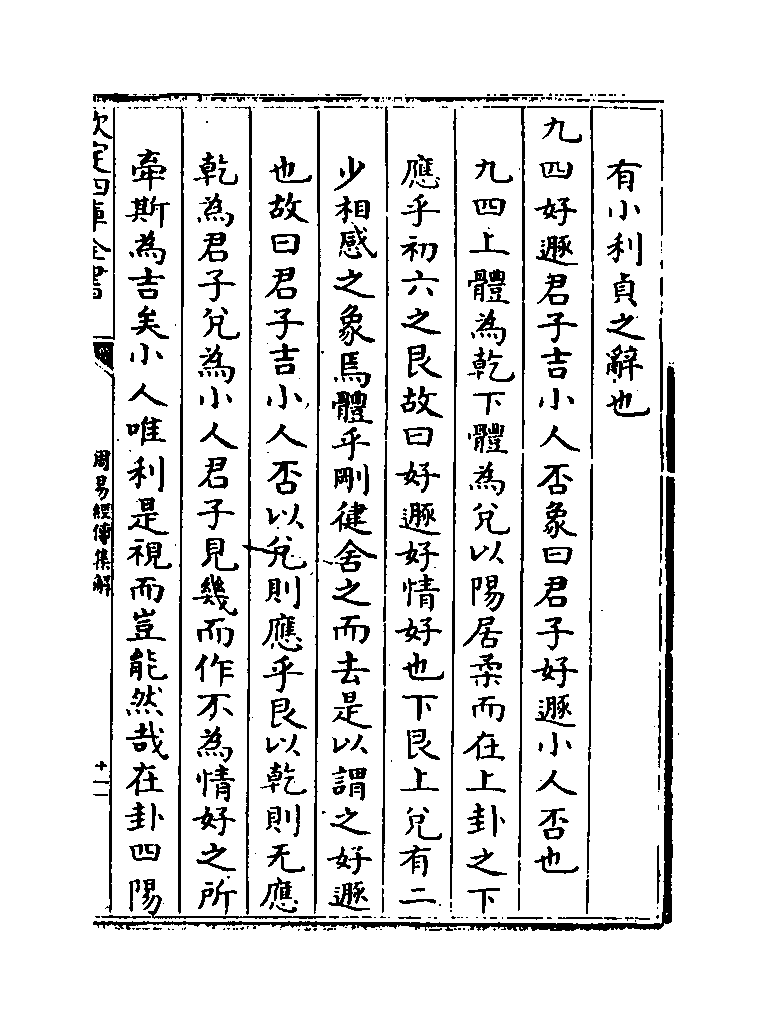 有小利貞之辭也
九四好遯君子吉小人否象曰君子好遯小人否也
九四上體為乾下體為兌以陽居柔而在上卦之下
應乎初六之艮故曰好遯好情好也下艮上兌有二
少相感之象焉體乎剛健舍之而去是以謂之好遯
也故曰君子吉小人否以兌則應乎艮以乾則无應
乾為君子兌為小人君子見幾而作不為情好之所
牽斯為吉矣小人唯利是視而豈能然哉在卦四陽
欽定四庫全書
周易經傳集解
十一